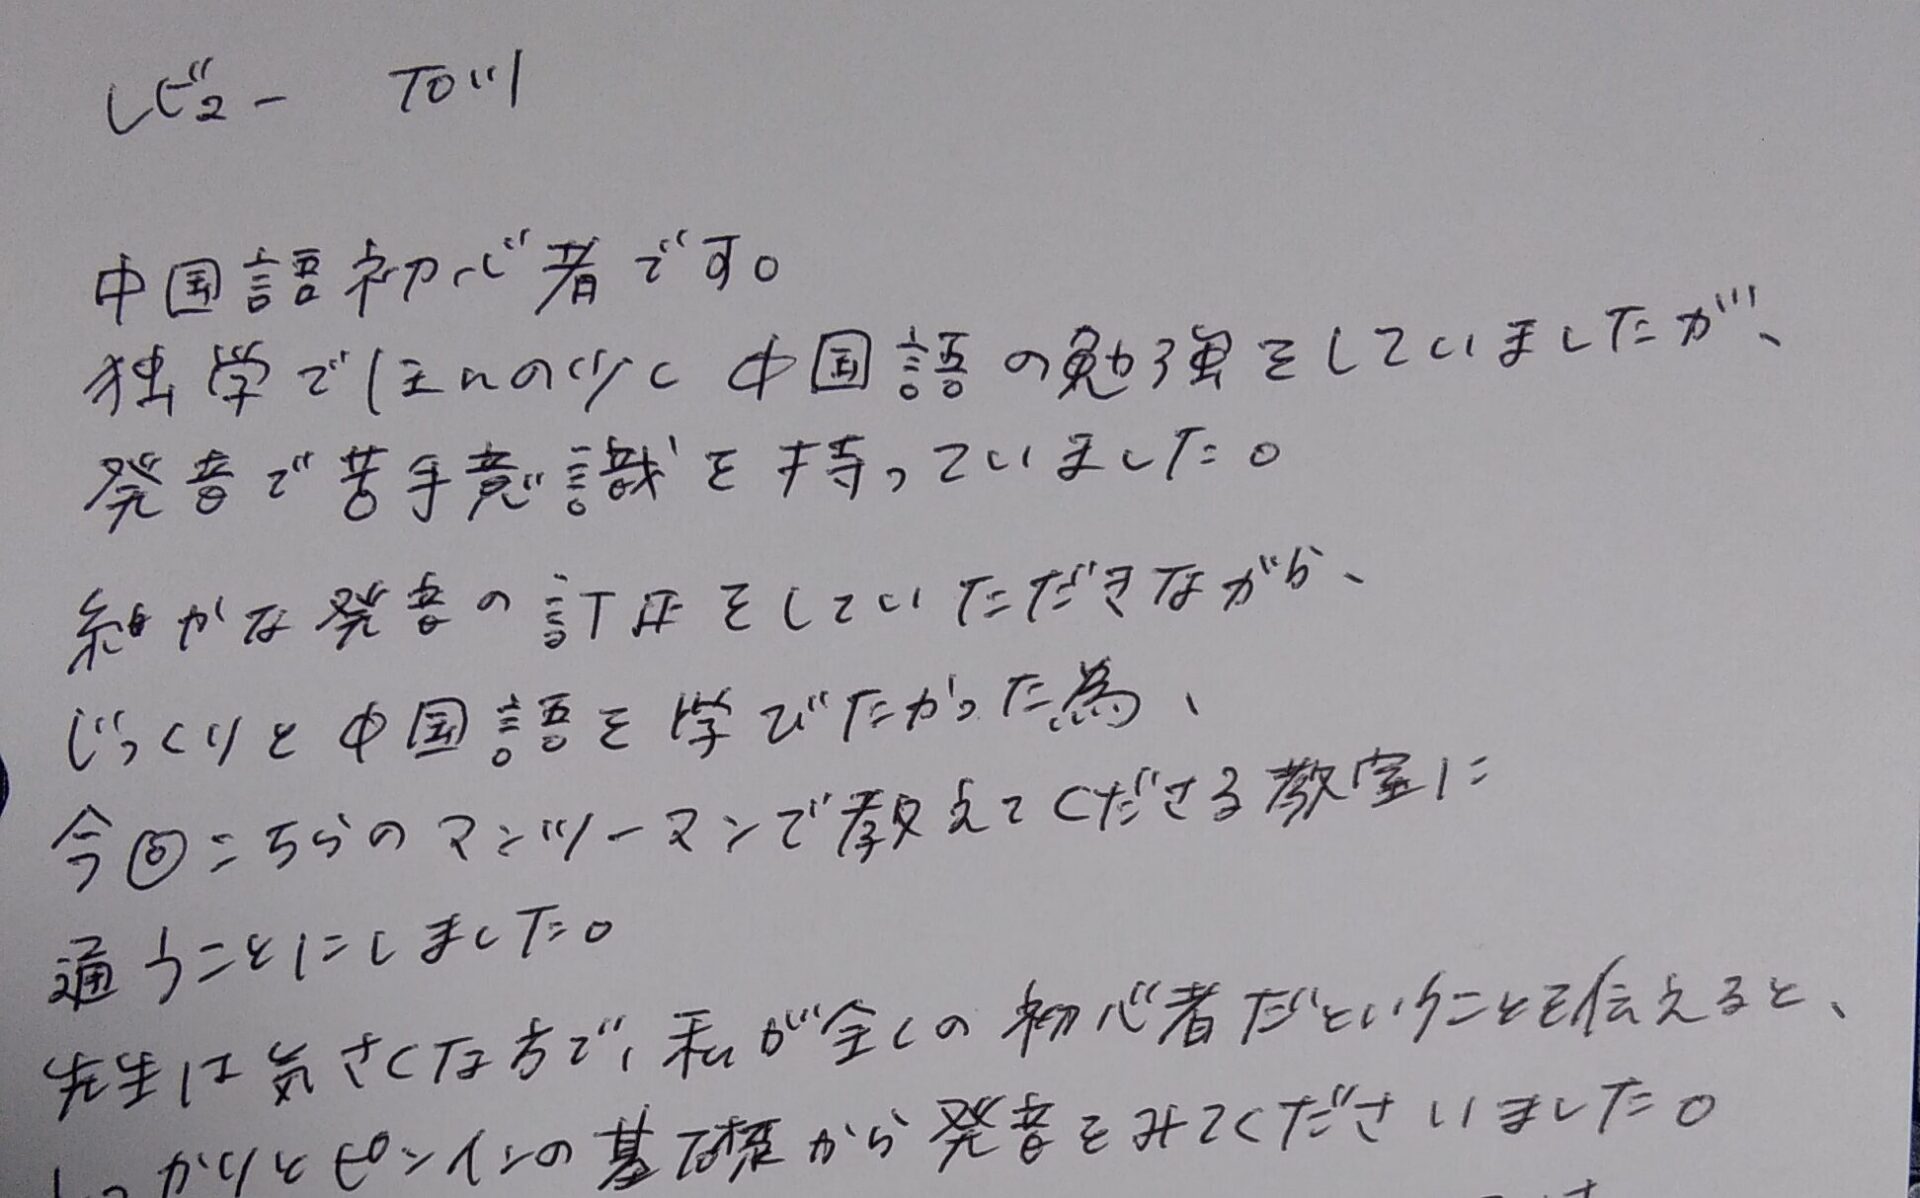 レビュー
中国語初心者です。
独学でほんの少し中国語の勉強をしていましたが、
発音で苦手意識を持っていました。
細かな発音の訂正をしていただきながら、
じっくりと中国語を学びたかった為、
今回こちらのマンツーマンで教えてくださる教室に
通うことにしました。
先生は気さくな方で、私が全くの初心者だということを伝えると、
しっかりとピンインの基礎から発音をみてくださいました。